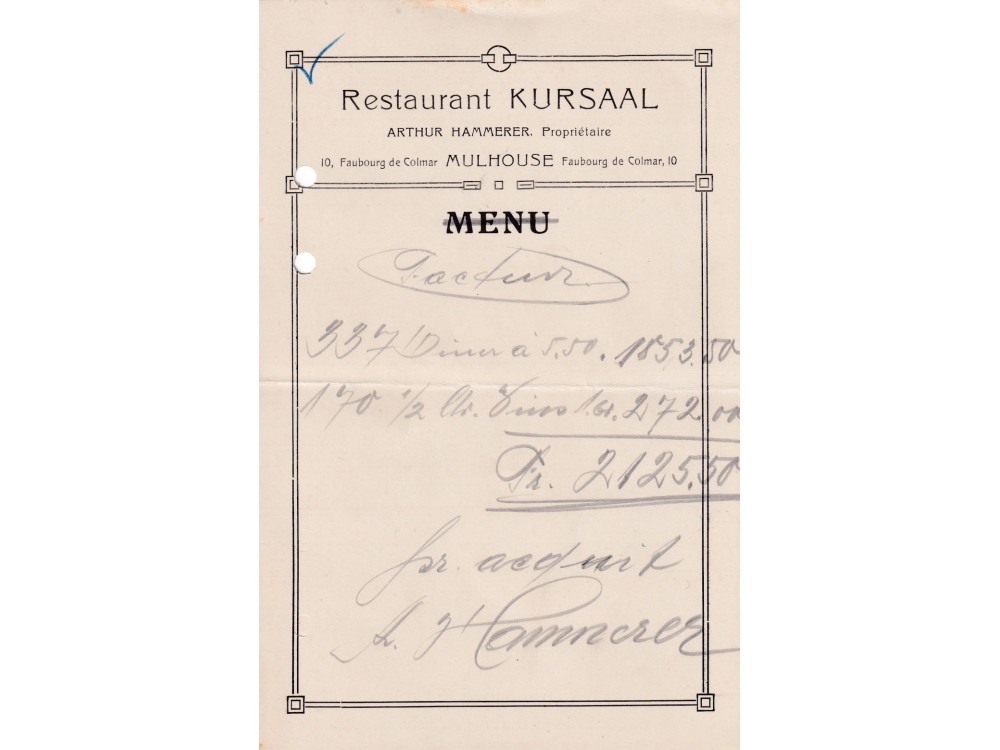 Restaurant KURSAAL
ARTHUR HAMMERER, Propriétaire
10, Faubourg de Colmar MULHOUSE Faubourg de Colmar, 10
MENU
Factur
337 Diner à 5.50. 1853.50
170. 1/2 Vins 272.00
Fr. 2125.50
pr. acquit
A. Hammerer